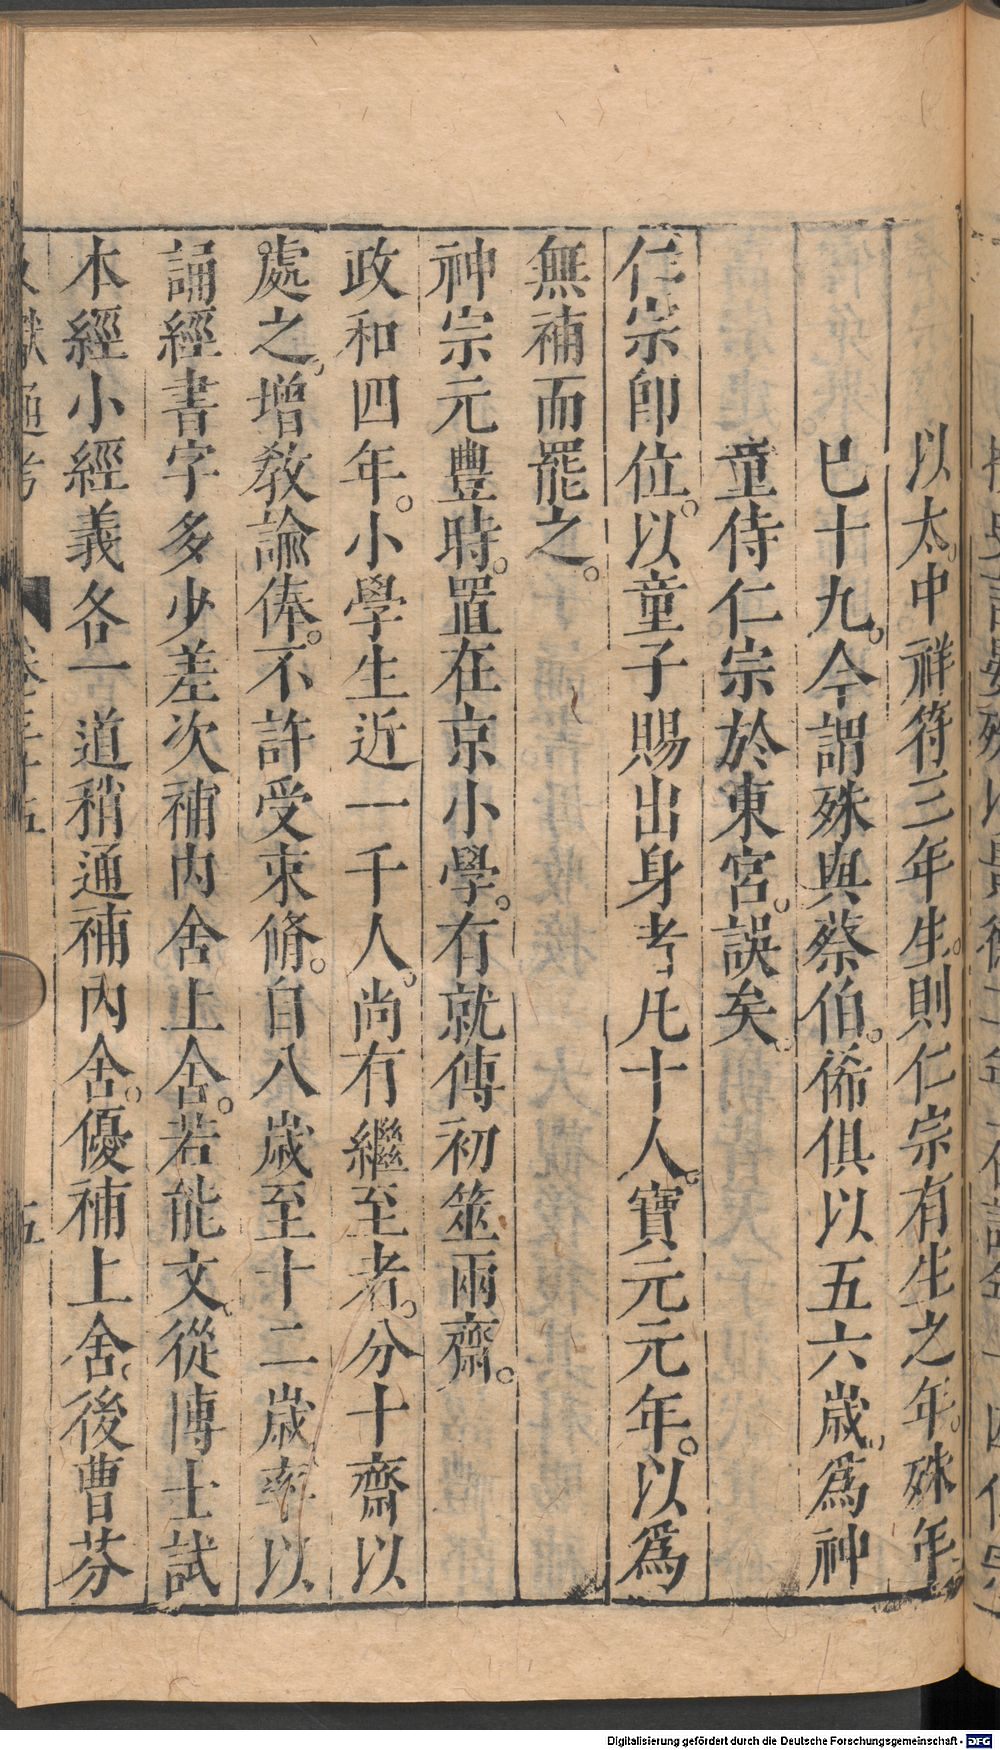 以太中祥符三年生。則仁宗有生之年。殊年
巳十九。今謂殊與蔡伯俙俱以五六歲。爲神
童侍仁宗於東宮。誤矣。
仁宗卽位。以童子賜出身者凡十人。寶元元年。以爲
無補而罷之。
神宗元豐時。置在京小學。有就傅初筮兩齋。
政和四年。小學生近一千人。尚有繼至者。分十齋以
處之。增敎諭俸。不許受束脩。自八歲至十二歲率以
誦經書字多少差次補內舍上舍。若能文。從博士試
本經小經義各一道稍通補內舍。優補上舍。後曹芬
文獻通考 卷三十五 五
Digitalisierung gefördert durch die Deutsche Forschungsgemeinschaft - DFG